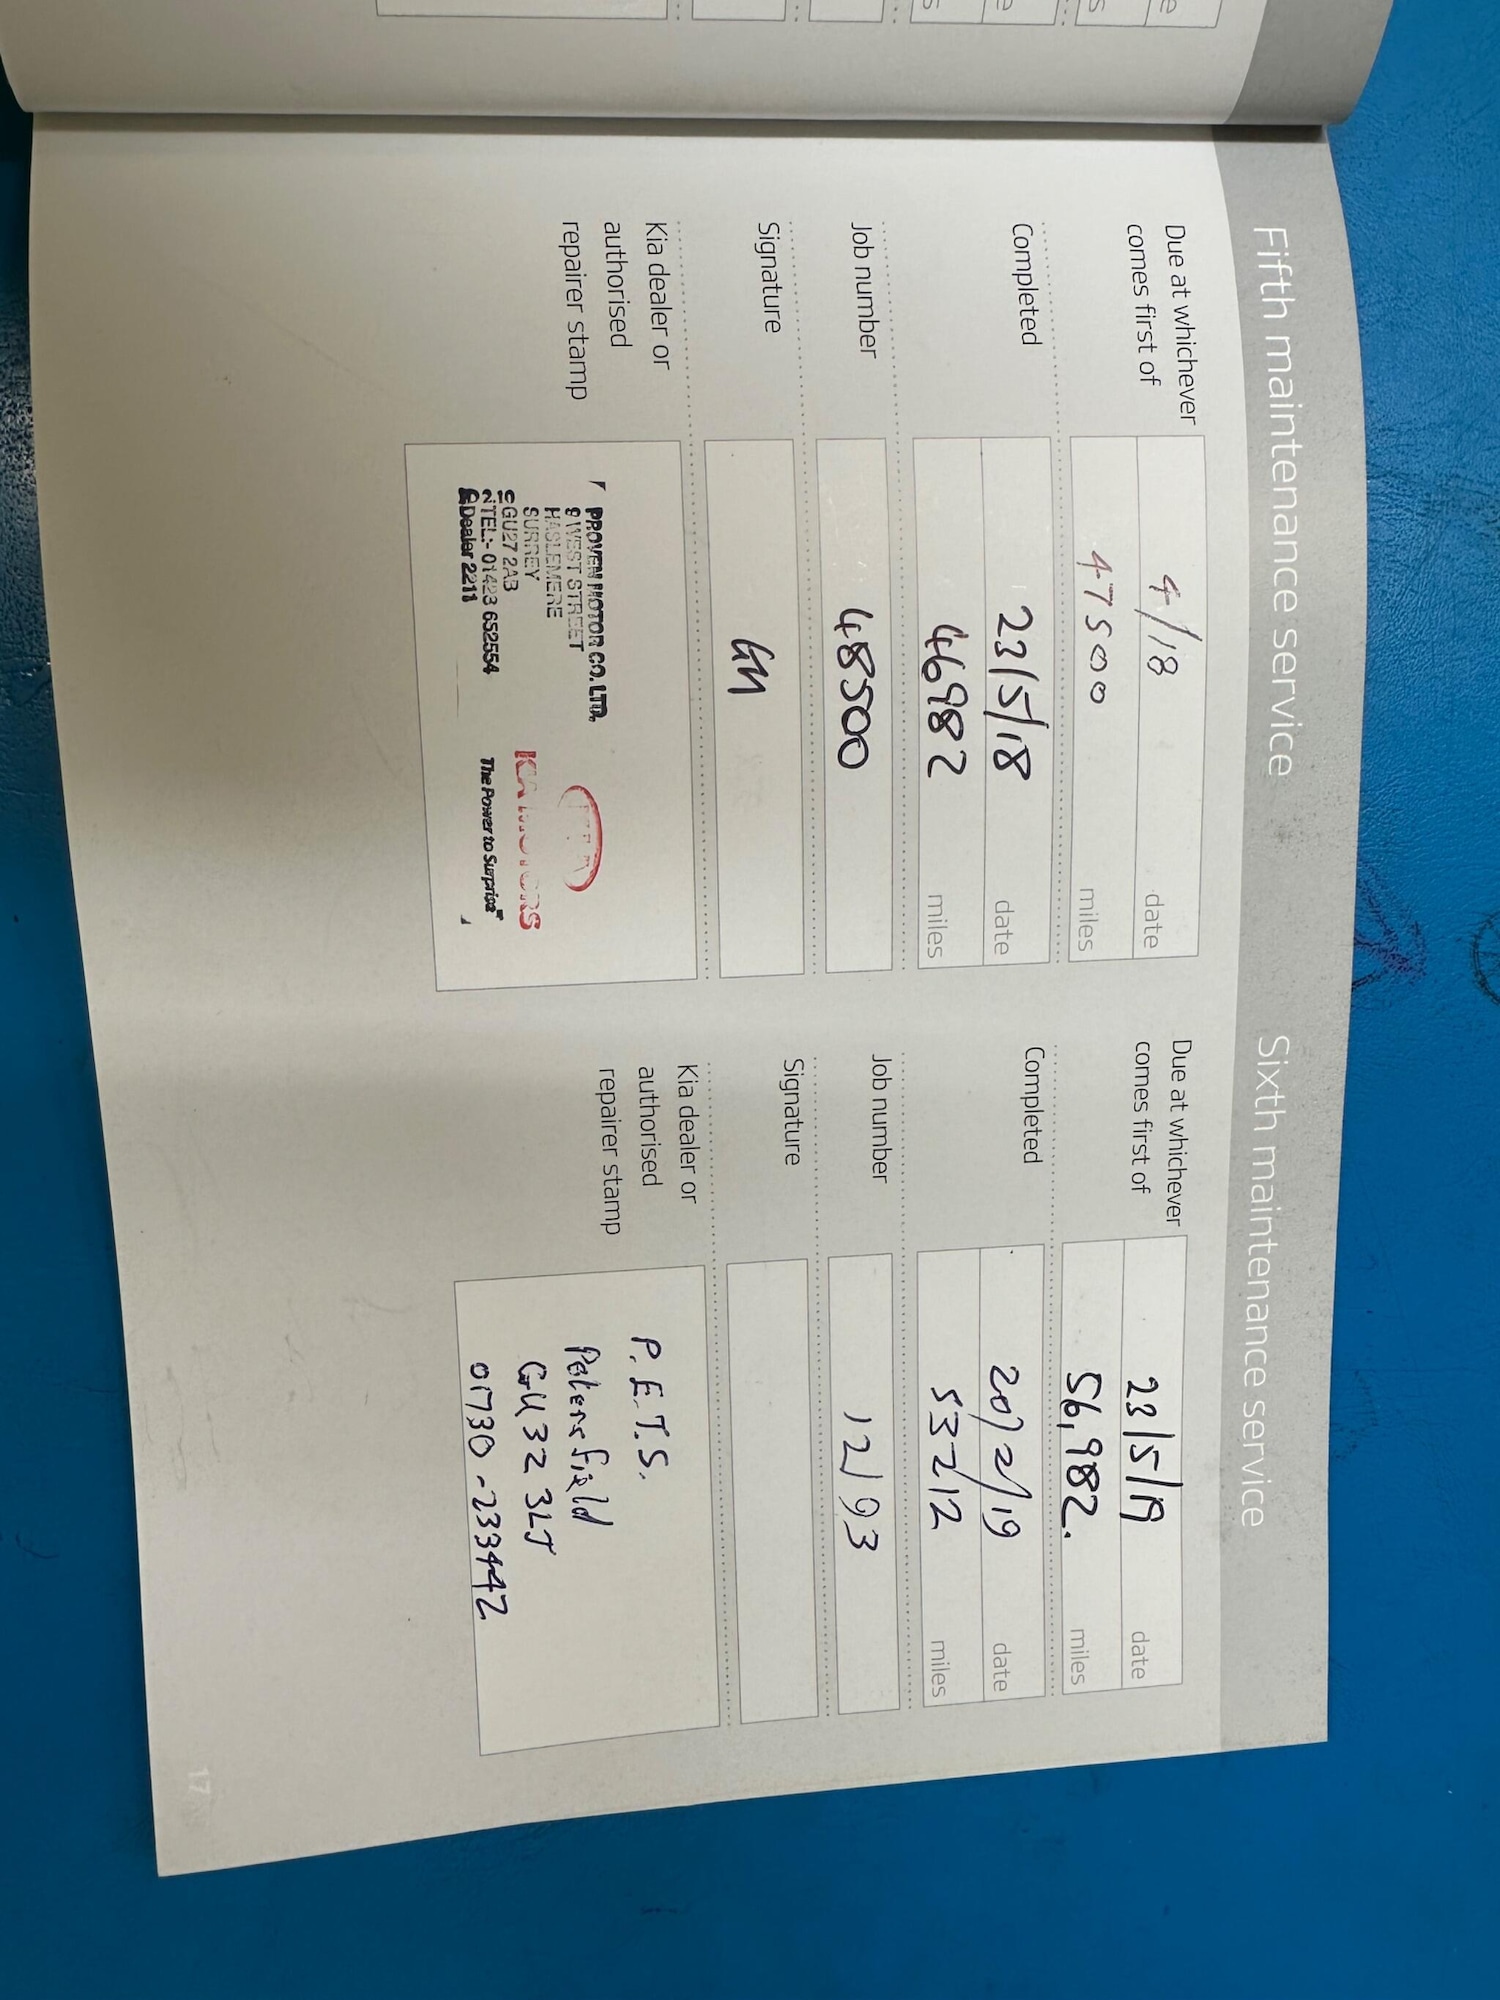 Fifth maintenance service
Due at whichever
comes first of
4/18 date
47500 miles
Completed
23/5/18 date
46982 miles
Job number
48500
Signature
GM
Kia dealer or
authorised
repairer stamp
PROVEN MOTOR CO. LTD.
9 WEST STREET
HASLEMERE
SURREY
GU27 2AB
TEL:- 01423 652554
Dealer 2211
KIA MOTORS
The Power to Surprise™
Sixth maintenance service
Due at whichever
comes first of
23/5/19 date
56,982. miles
Completed
20/2/19 date
53212 miles
Job number
12193
Signature
Kia dealer or
authorised
repairer stamp
P.E.T.S.
Petersfield
GU32 3LT
01730-233442
17